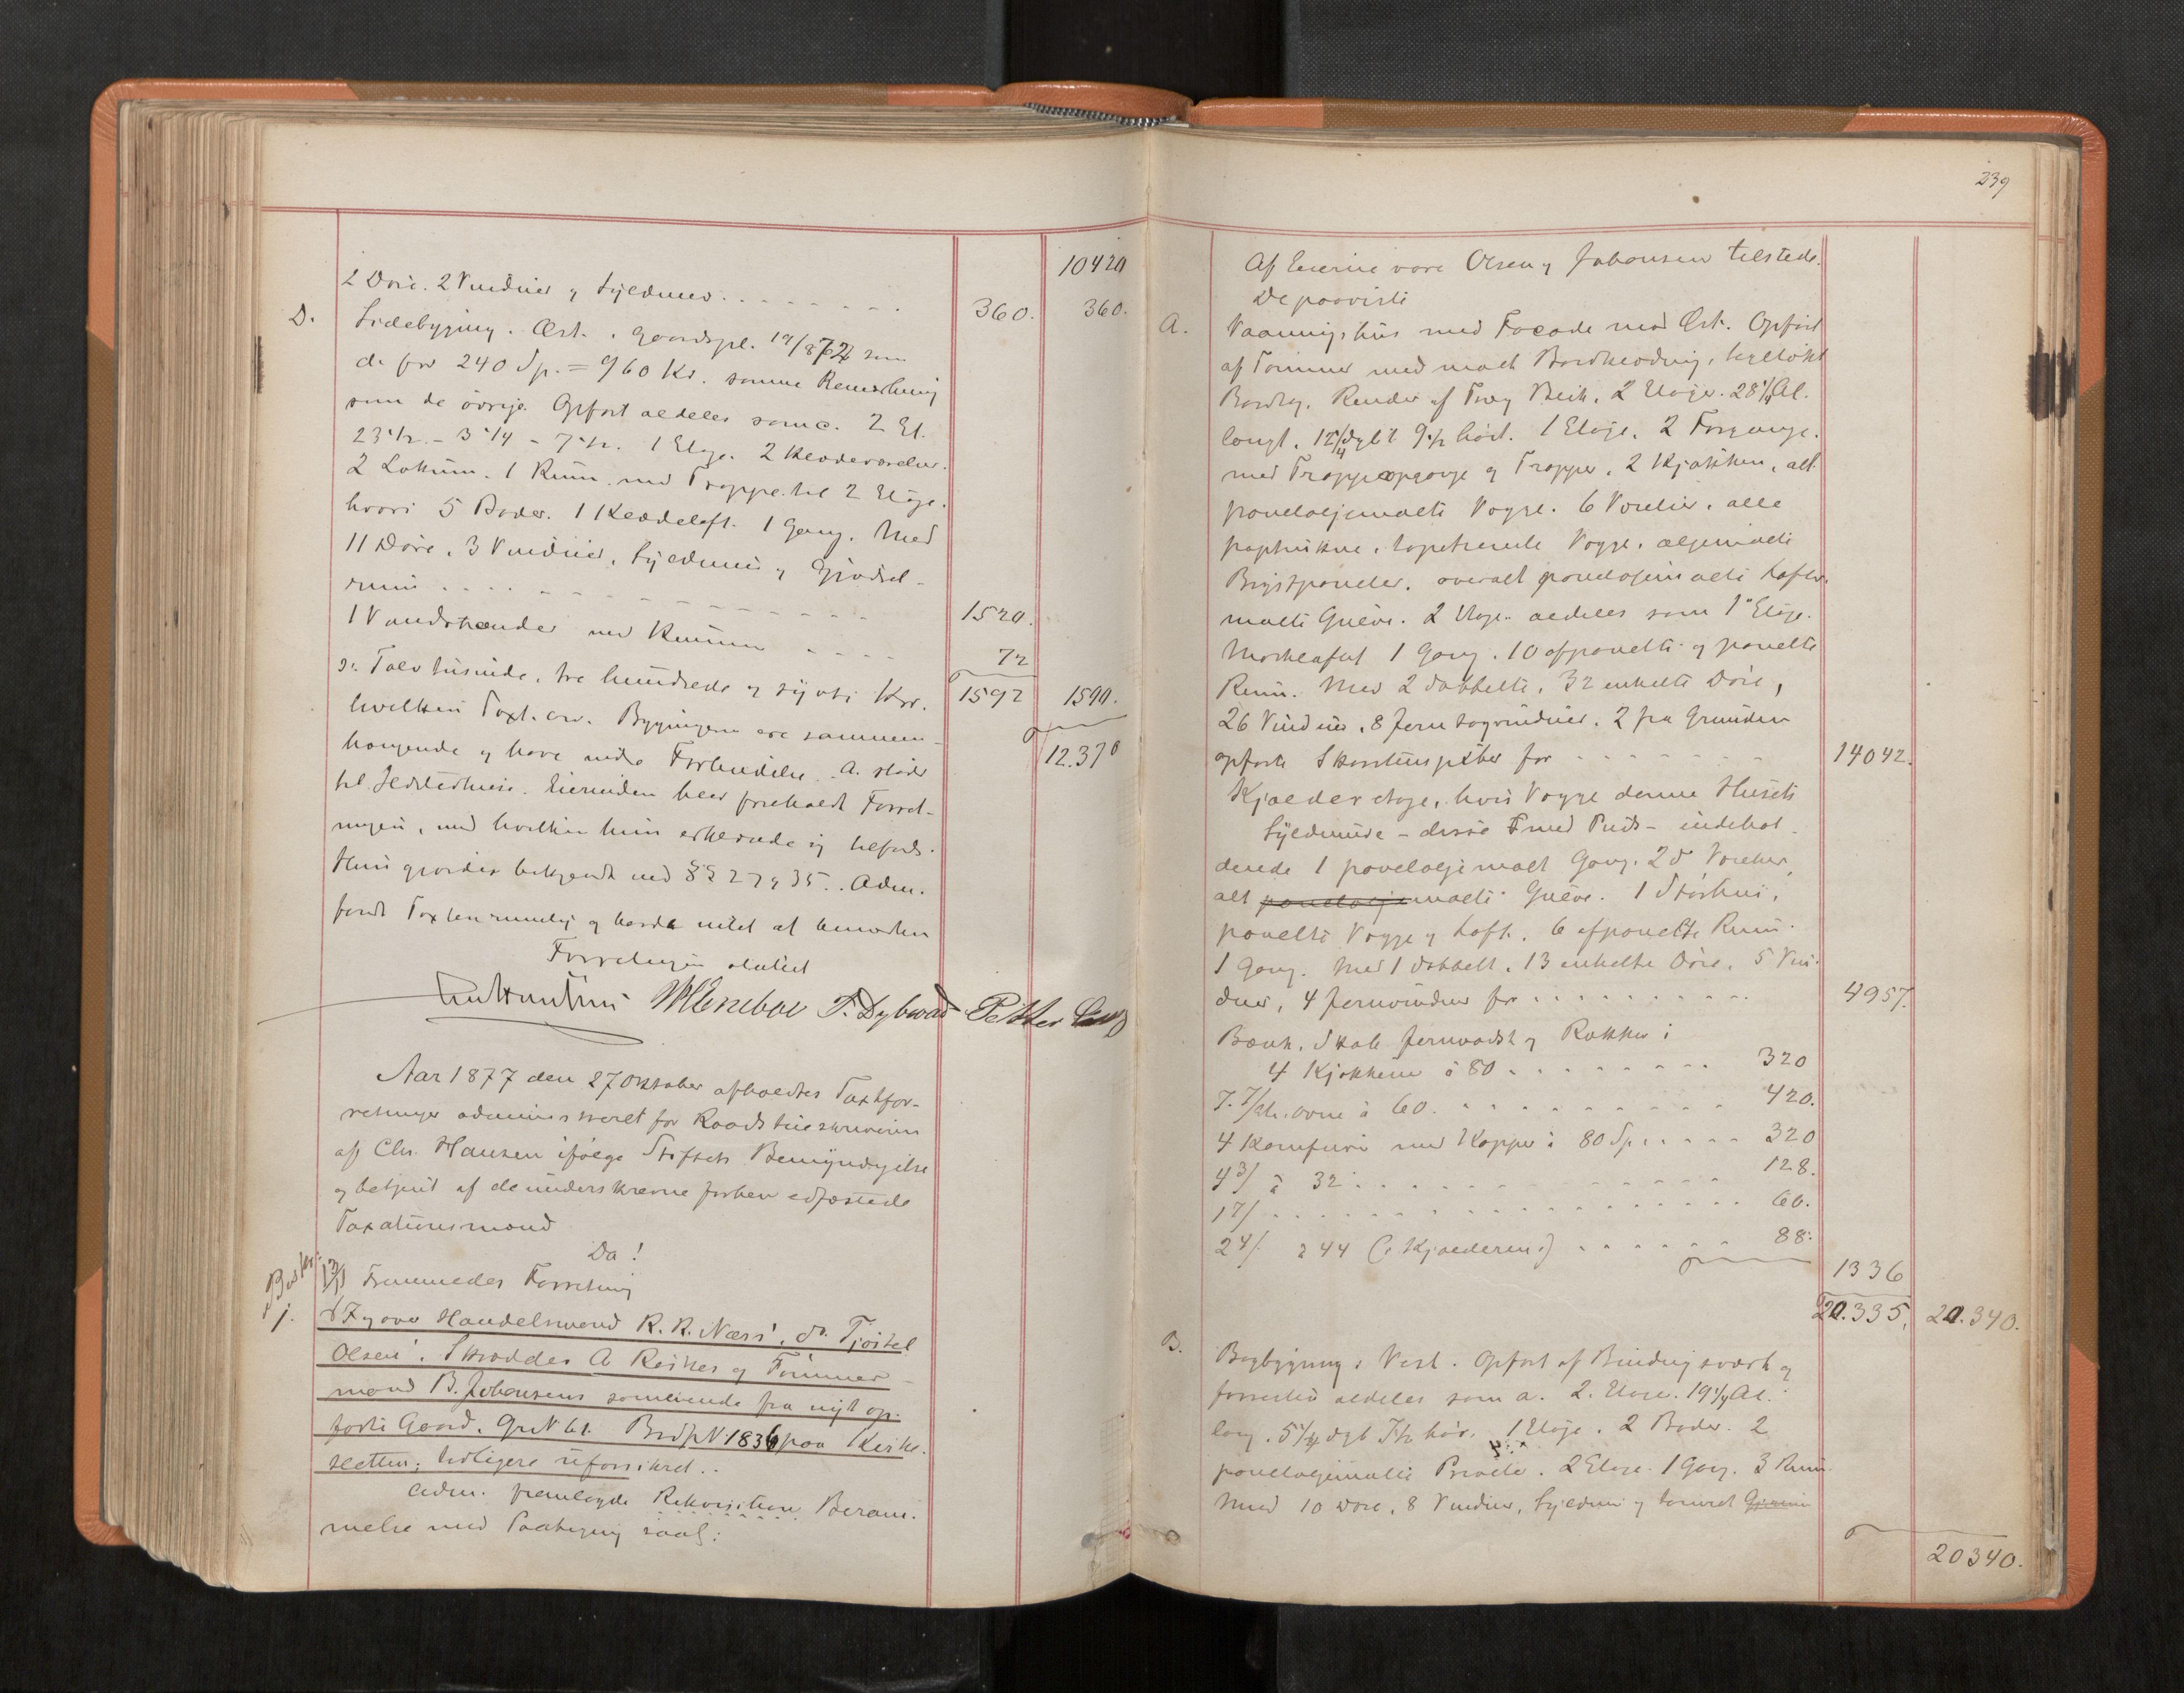 10420
2 Döre. 2 Vinduer og Syldmur . . . . . . . . 360. 360.
D. Sidebygning. Öst. i Gaardspl. 19/8 72 som
de for 240 Sp. = 960 Kr. samme Bemærkning
som de övrige. Opfört aldeles som c. 2 Et.
23 1/2 - 3 1/4 - 7 1/2. 1 Etage. 2 Klædeværelser.
2 Lokum. 1 Rum med Trappe til 2 Etage.
hvori 5 Boder. 1 Klædeloft. 1 Gang. Med
11 Döre. 3 Vinduer, Syldmur og Gjödsel-
rum . . . . . . . . . . . . 1520.
1 Vandstænder med Kumme . . . . 72
1592 1590.
Tolv tusinde, tre hundrede og sytti Kr.
12.370
hvilken Taxt. er. Bygningerne ere sammen-
hængende og have indre Forbindelse. A. stöder
til Jldstedhuse. Eierinden blev foreholdt Forret-
ningen, med hvilken hun erklærede sig tilfreds.
Hun gjordes bekjendt med §§ 27 og 35. Adm.
fandt Taxten rimelig og havde intet at bemærke
Forretningen sluttet
Chr Hansen F. Dybwad Petter
Aar 1877 den 27 Oktober afholdtes Taxtfor-
retninger administreret for Raadstueskriveren
af Chr. Hansen ifölge Stiftets Bemyndigelse
og betjent af de underskrevne forhen edfæstede
Taxationsmænd
Da!
Fremmedes Forretning
1. over Handelsmand R. R. Næss', do. Tjöstel
Olsens', Skrædder A Reines og Tömmer-
mand B. Johansens someiende fra nyt op-
förte Gaard. GrN 61. BrdpN 1836 paa Kirke-
sletten; tidligere uforsikret..
Adm. fremlagde Rekvisition Beram-
melse med Paategning saal:
239
Af Eierne vare Olsen og Johansen tilstede.
De paaviste
A. Vaaningshus med Facade mod Öst. Opfört
af Tömmer med malt Bordklædning, teglstökt
Bordtag. Render af Træ og Blik. 2 Etager. 28 1/4 Al.
langt. 12 1/4 dybt 9 1/2 höit. 1 Etage. 2 Forgange.
med Trappeopgange og Trapper, 2 Kjökken, alt
paneloljemalte Vægge. 6 Værelser, alle
papstrukne, tapetserede Vægge, oljemalte
Brystpaneler, overalt paneloljemalte Lofter.
malte Gulve. 2 Etage aldeles som 1' Etage.
Mörkloftet 1 Gang. 10 afpanelte og panelte
Rum. Med 2 dobbelte, 32 enkelte Döre,
26 Vinduer, 8 Jerntagvinduer. 2 fra Grunden
opförte Skorstenspiber for . . . . . . . 14042.
Kjælderetage, hvis Vægge danne Husets
Syldmure - disse med Puds - indehol-
dende 1 paneloljemalt Gang. 2 do Værelser,
alt paneloljemalte Gulve. 1 Störhus,
panelte Vægge og Loft. 6 afpanelte Rum.
1 Gang. Med 1 dobbelt, 13 enkelte Döre, 5 Vin-
duer, 4 Jernvinduer for . . . . . . . . . . 4957.
Bænk, Skab Jernvadsk og Rækker i
4 Kjökkene à 80 . . . . . . . . 320
7. 7/ Et. ovne à 60. . . . . . . . . . . 420.
4 Komfurer med Kapper à 80 Sp. . . . . 320
4 3/ à 32 . . . . . . . . . . . 128.
1 2/ . . . . . . . . . . . . . . . 60.
2 4/. à 44 (i Kjælderen) . . . . . . 88.
1336
20.335, 20.340.
B. Bagbygning i Vest. Opfört af Bindingsværk og
forresten aldeles som a. 2. Etage. 19 1/4 Al.
lang. 5 1/4 dybt 7 1/2 höi. 1 Etage. 2 Boder. 2
paneloljemalte Privete. 2 Etage. 1 Gang. 3 Rum.
Med 10 Döre, 8 Vinduer, Syldmur og
20340.